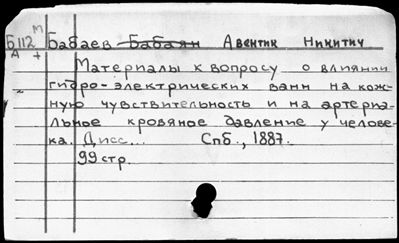 Б112 М Бабаев Бабаян Авентик Никитич
А +
Материалы к вопросу о влиянии
гидро-электрических ванн на кож-
ную чувствительность и на артериа-
льное кровяное давление у челове-
ка. Дисс... Спб., 1887.
99 стр.